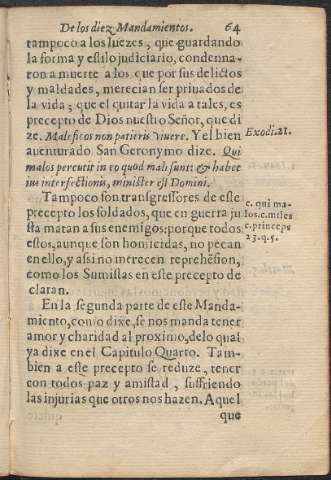 De los diez Mandamientos. 64
tampoco a los Iuezes, que guardando
la forma y estilo judiciario, condenna-
ron a muerte a los que por sus delictos
y maldades, merecian ser priuados de
la vida; que el quitar la vida a tales, es
precepto de Dios nuestro Señor, que di
ze. Maleficos non patieris viuere. Y el bien
Exodi. 21.
auenturado San Geronymo dize. Qui
malos percutit in eo quod mali sunt: & habet
ius interfectionis, minister est Domini.
Tampoco san transgressores de este
precepto los soldados, que en guerra ju
sta matan a sus enemigos: porque todos
estos, aunque son homicidas, no pecan
en ello, y assi no merecen reprehẽsion,
como los Sumistas en este precepto de
claran.
c. qui ma-
los. c. miles
c. princeps
23. q. 5.
En la segunda parte de este Manda-
miento, como dixe, se nos manda tener
amor y charidad al proximo, de lo qual
ya dixe en el Capitulo Quarto. Tam-
bien a este precepto se reduze, tener
con todos paz y amistad, suffriendo
las injurias que otros nos hazen. Aquel
que